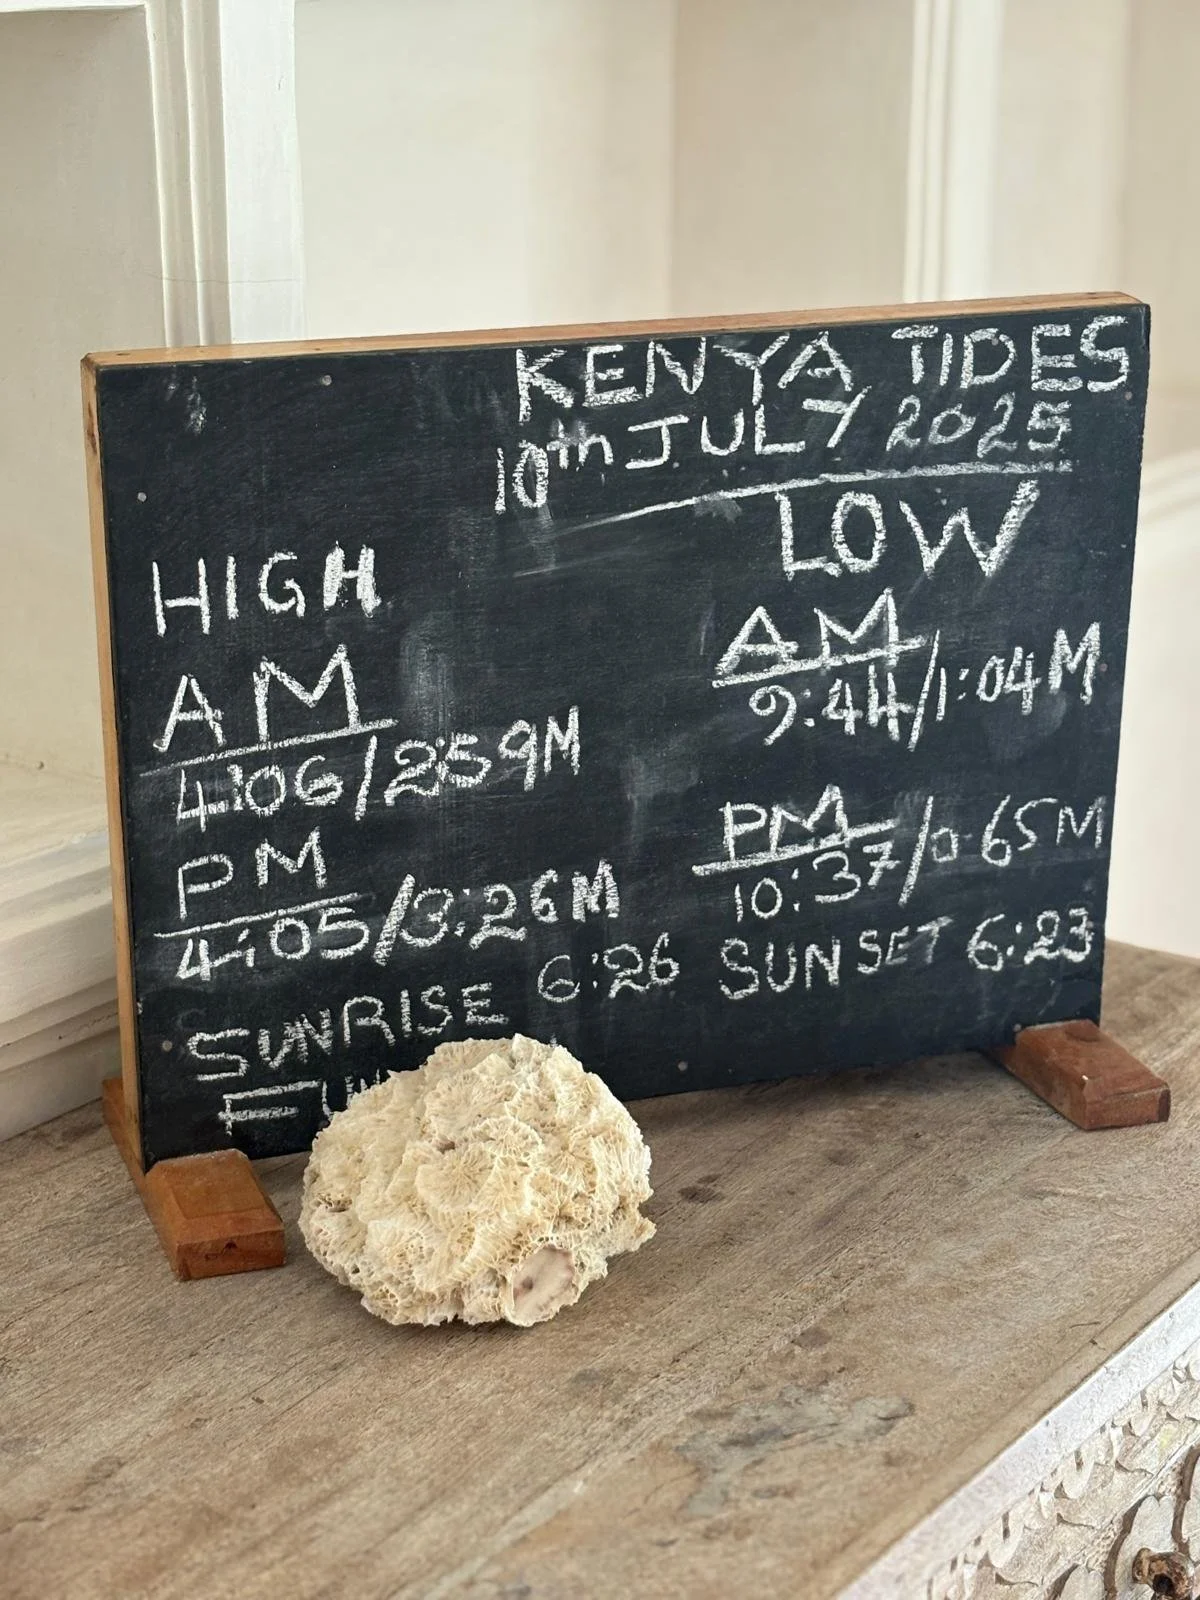 KENYA TIDES
10th JULY 2025
HIGH
AM
4:06/2:59M
PM
4:05/3:26M
LOW
AM
9:44/1:04M
PM
10:37/0.65M
SUNRISE 6:26 SUNSET 6:23